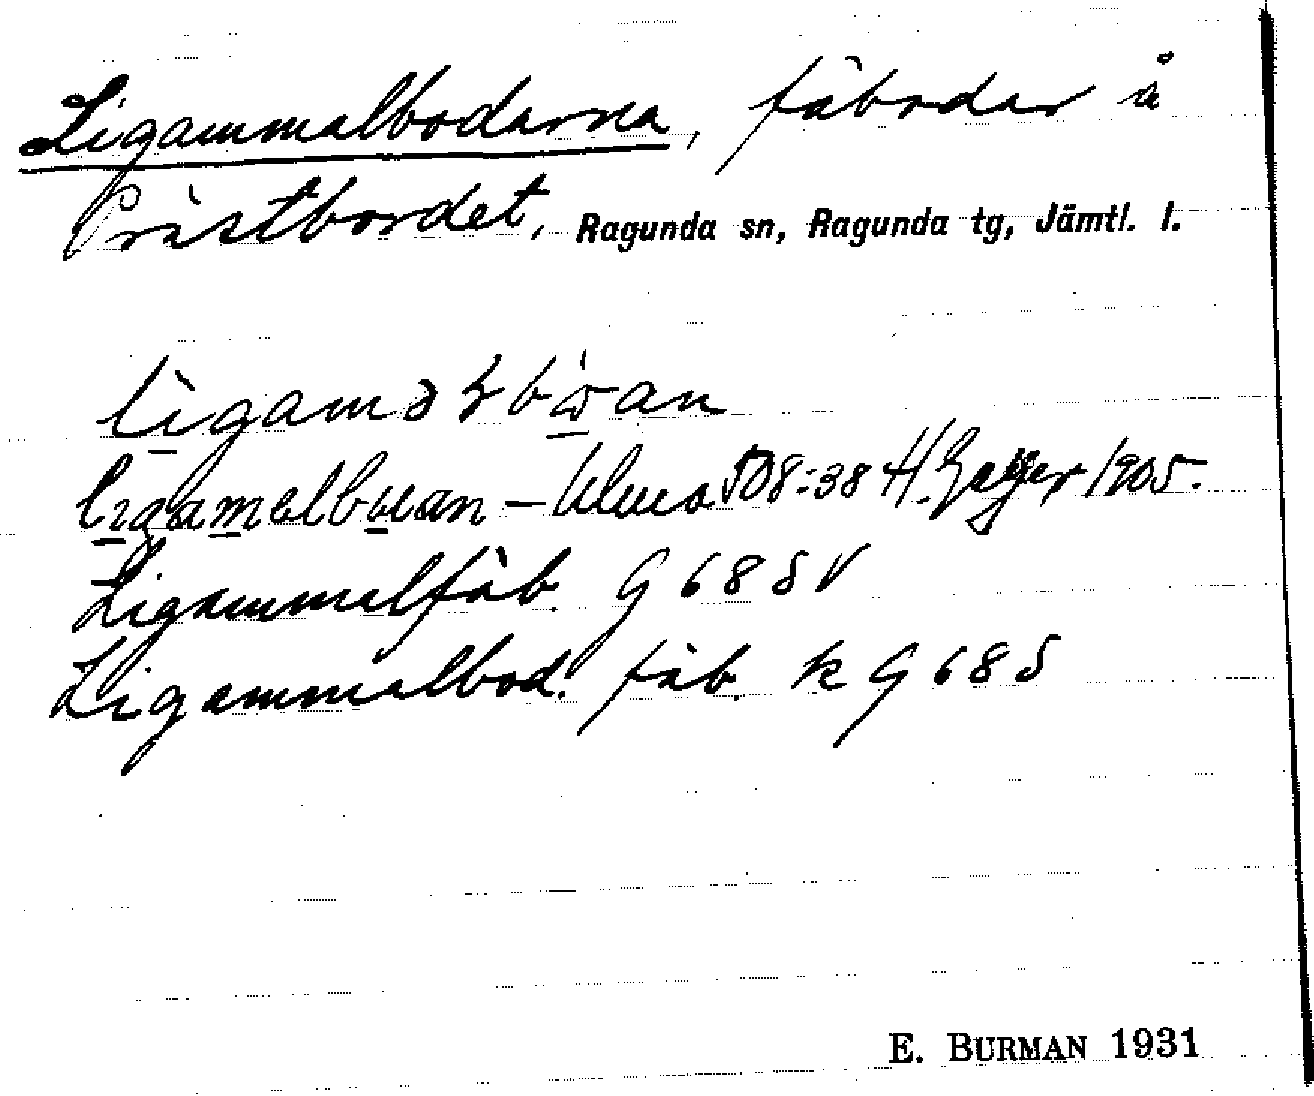 Ligammalbodarna, fäbodar å
Prästbordet, Ragunda sn, Ragunda tg, Jämtl. l.
Ulma 508:38 H. Geijer 1905.
Ligammalfäb. G 68 SV
Ligammalbod. fäb. k G 68 S
E. BURMAN 1931